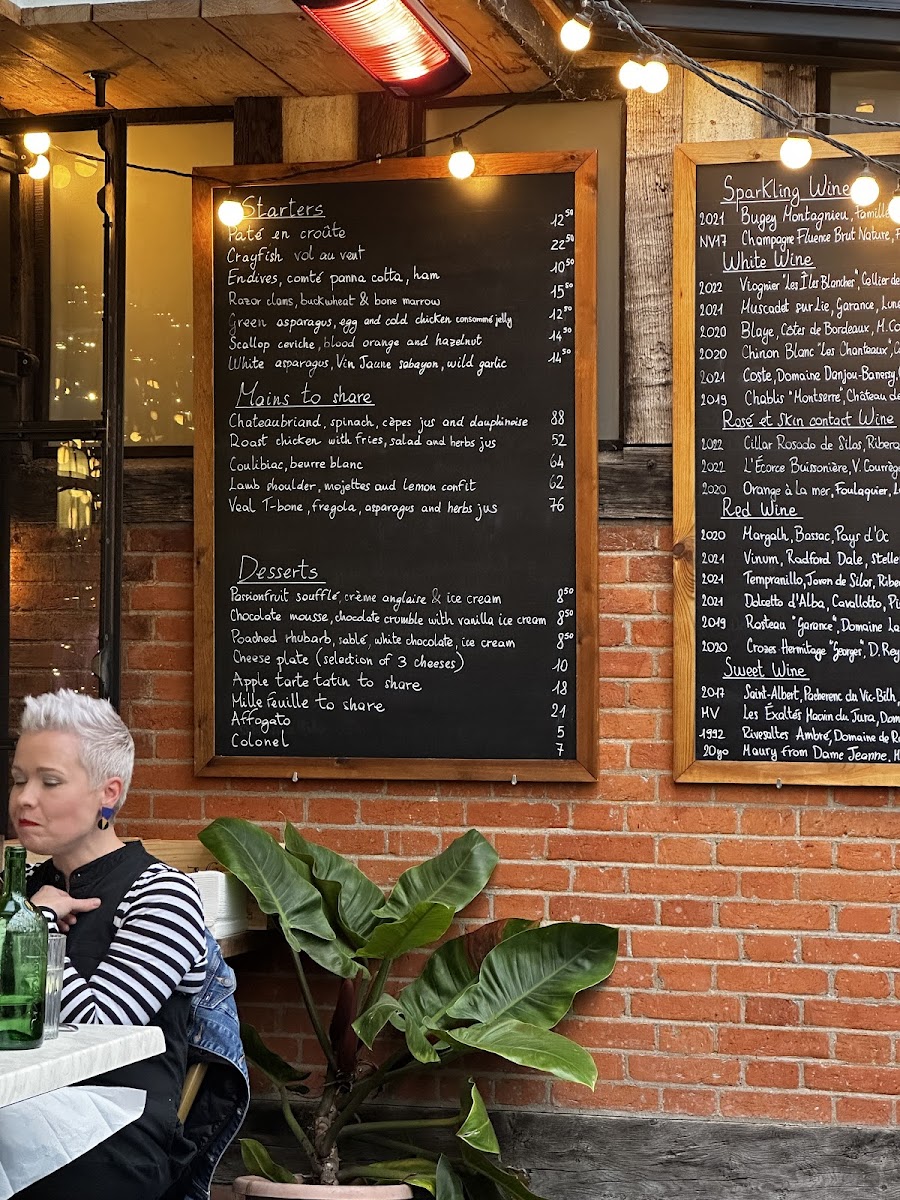 Starters
Pâté en croûte 12⁵⁰
Crayfish vol au vent 22⁵⁰
Endives, comté panna cotta, ham 10⁵⁰
Razor clams, buckwheat & bone marrow 15⁵⁰
Green asparagus, egg and cold chicken consommé jelly 12⁵⁰
Scallop ceviche, blood orange and hazelnut 14⁵⁰
White asparagus, Vin Jaune sabayon, wild garlic 14⁵⁰
Mains to share
Chateaubriand, spinach, cèpes jus and dauphinoise 88
Roast chicken with fries, salad and herbs jus 52
Coulibiac, beurre blanc 64
Lamb shoulder, mojettes and lemon confit 62
Veal T-bone, fregola, asparagus and herbs jus 76
Desserts
Passionfruit soufflé, crème anglaise & ice cream 8⁵⁰
Chocolate mousse, chocolate crumble with vanilla ice cream 8⁵⁰
Poached rhubarb, sablé, white chocolate, ice cream 8⁵⁰
Cheese plate (selection of 3 cheeses) 10
Apple tarte tatin to share 18
Mille feuille to share 21
Affogato 5
Colonel 7
Sparkling Wine
2021 Bugey Montagnieu, Famille
NV17 Champagne Fluence Brut Nature, F
White Wine
2022 Viognier "Les Îles Blanches", Cellier de
2021 Muscadet sur Lie, Garance, Lune
2020 Blaye, Côtes de Bordeaux, H. Co
2020 Chinon Blanc "Les Chanteaux", C
2021 Coste, Domaine Danjou-Banessy,
2019 Chablis "Montserre", Château de
Rosé et skin contact Wine
2022 Cillar Rosado de Silos, Ribera
2022 L'Écorce Buissonière, V. Courrèg
2020 Orange à la mer, Foulaquier, L
Red Wine
2020 Margalh, Bassac, Pays d'Oc
2021 Vinum, Radford Dale, Stelle
2021 Tempranillo, Joven de Silos, Ribe
2021 Dolcetto d'Alba, Cavallotto, Pi
2019 Rasteau "Garance", Domaine La
2020 Crozes Hermitage "Georges", D. Rey
Sweet Wine
2017 Saint-Albert, Pacherenc du Vic-Bilh,
MV Les Éxaltés Macvin du Jura, Dom
1992 Rivesaltes Ambré, Domaine de Ra
20yo Maury from Dame Jeanne, M